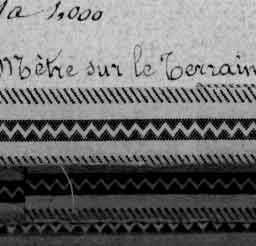 la 1,000
Mètre sur le Terrain